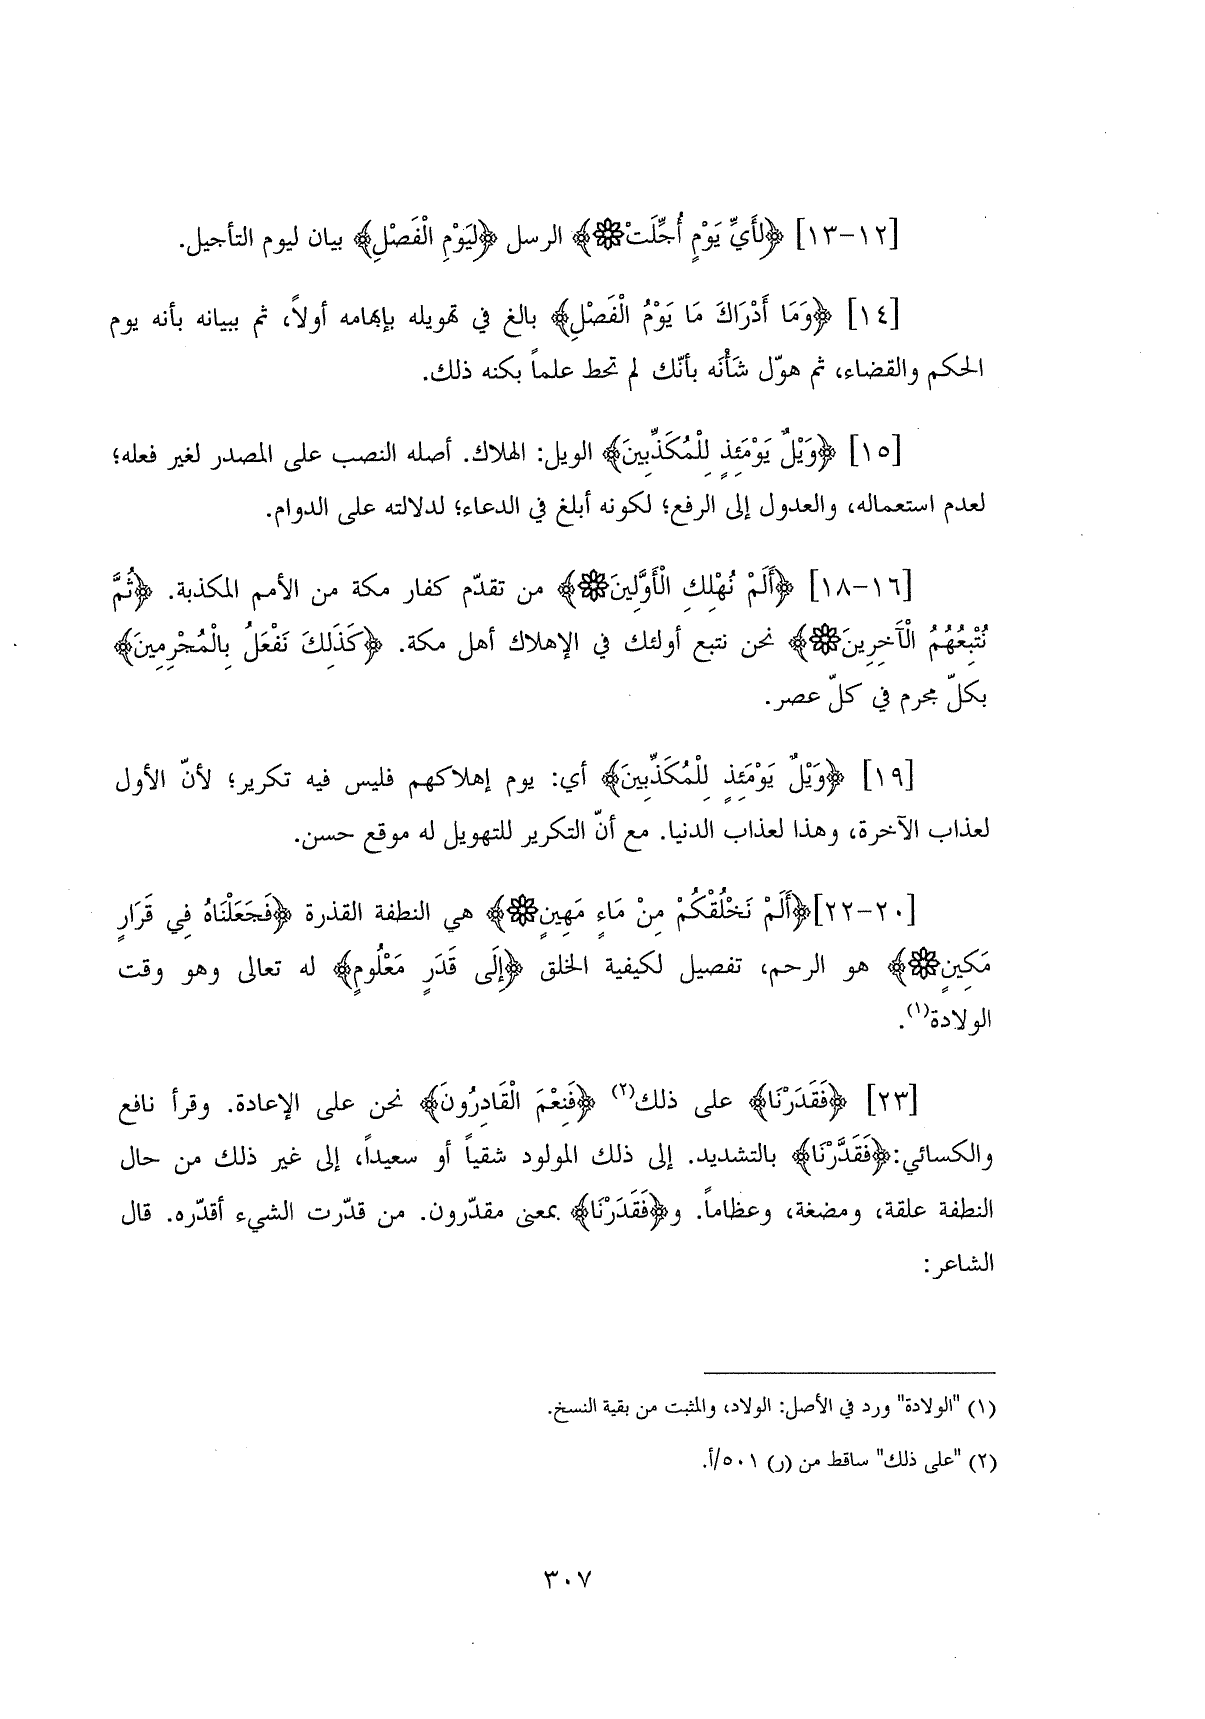 [١٢-١٣] ﴿لِأَيِّ يَوْمٍ أُجِّلَتْ۞﴾ الرسل ﴿لِيَوْمِ الْفَصْلِ﴾ بيان ليوم التأجيل.
[١٤] ﴿وَمَا أَدْرَاكَ مَا يَوْمُ الْفَصْلِ﴾ بالغ في تهويله بإبهامه أولاً، ثم ببيانه بأنه يوم
الحكم والقضاء، ثم هوّل شَأْنَه بأنّك لم تحط علماً بكنه ذلك.
[١٥] ﴿وَيْلٌ يَوْمَئِذٍ لِلْمُكَذِّبِينَ﴾ الويل: الهلاك. أصله النصب على المصدر لغير فعله؛
لعدم استعماله، والعدول إلى الرفع؛ لكونه أبلغ في الدعاء؛ لدلالته على الدوام.
[١٦-١٨] ﴿أَلَمْ نُهْلِكِ الْأَوَّلِينَ۞﴾ من تقدّم كفار مكة من الأمم المكذبة. ﴿ثُمَّ
نُتْبِعُهُمُ الْآخِرِينَ۞﴾ نحن نتبع أولئك في الإهلاك أهل مكة. ﴿كَذَلِكَ نَفْعَلُ بِالْمُجْرِمِينَ﴾
بكلّ مجرم في كلّ عصر.
[١٩] ﴿وَيْلٌ يَوْمَئِذٍ لِلْمُكَذِّبِينَ﴾ أي: يوم إهلاكهم فليس فيه تكرير؛ لأنّ الأول
لعذاب الآخرة، وهذا لعذاب الدنيا. مع أنّ التكرير للتهويل له موقع حسن.
[٢٠-٢٢]﴿أَلَمْ نَخْلُقْكُمْ مِنْ مَاءٍ مَهِينٍ۞﴾ هي النطفة القذرة ﴿فَجَعَلْنَاهُ فِي قَرَارٍ
مَكِينٍ۞﴾ هو الرحم، تفصيل لكيفية الخلق ﴿إِلَى قَدَرٍ مَعْلُومٍ﴾ له تعالى وهو وقت
الولادة(١).
[٢٣] ﴿فَقَدَرْنَا﴾ على ذلك(٢) ﴿فَنِعْمَ الْقَادِرُونَ﴾ نحن على الإعادة. وقرأ نافع
والكسائي:﴿فَقَدَّرْنَا﴾ بالتشديد. إلى ذلك المولود شقياً أو سعيداً، إلى غير ذلك من حال
النطفة علقة، ومضغة، وعظاماً. و﴿فَقَدَرْنَا﴾ بمعنى مقدّرون. من قدّرت الشيء أقدّره. قال
الشاعر:
(١) "الولادة" ورد في الأصل: الولاد، والمثبت من بقية النسخ.
(٢) "على ذلك" ساقط من (ر) ٥٠١/أ.
٣٠٧